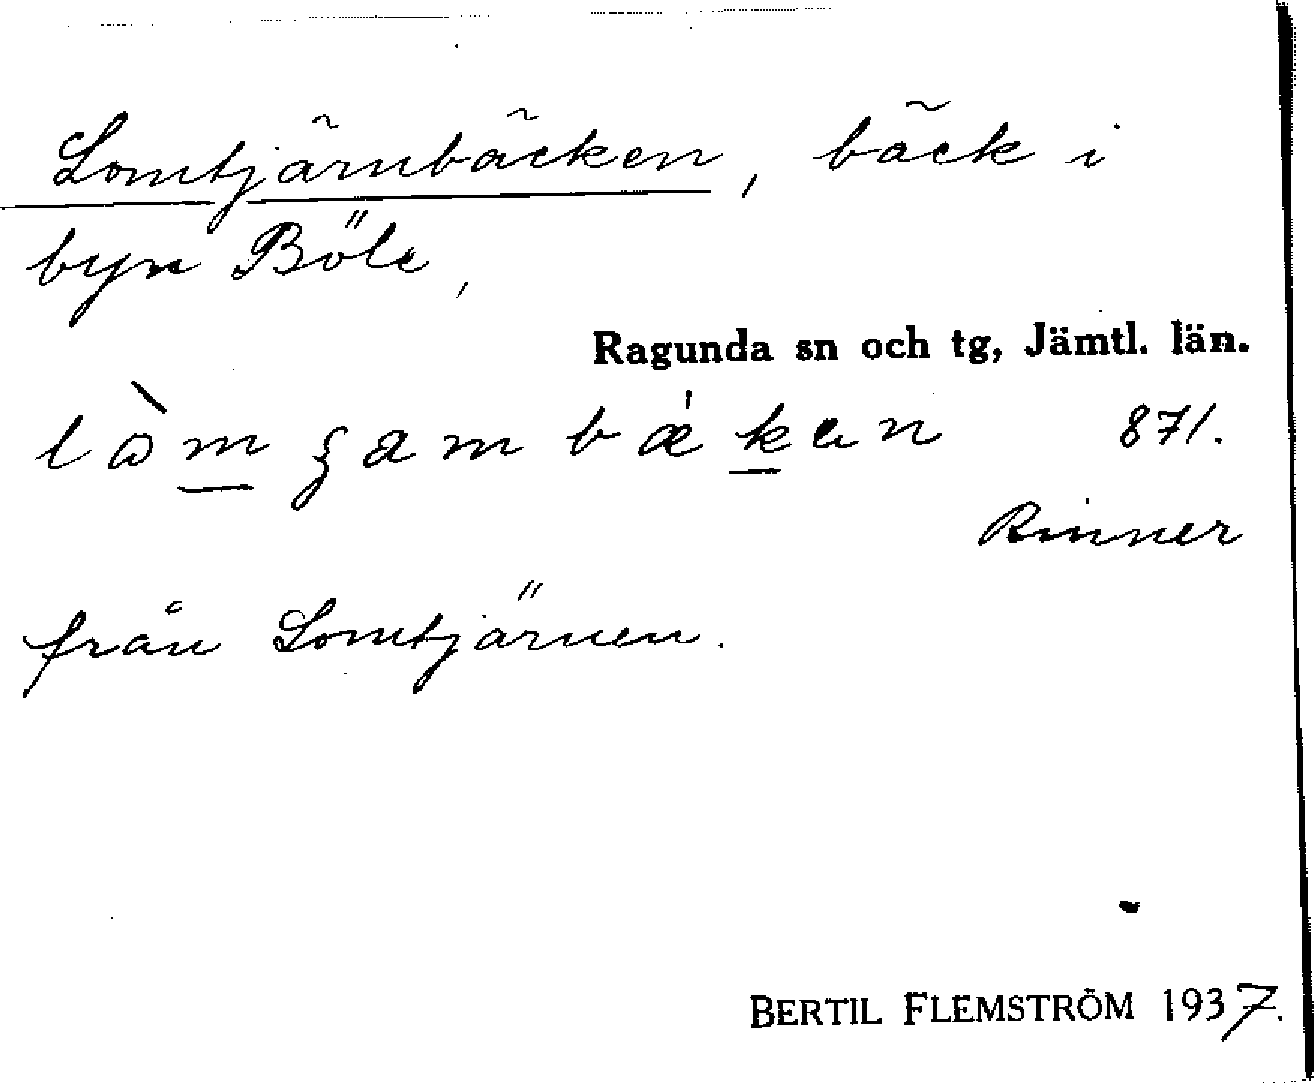 Lomtjärnbäcken, bäck i
byn Böle,
Ragunda sn och tg, Jämtl. län.
871.
Rinner
från Lomtjärnen.
BERTIL FLEMSTRÖM 1937.